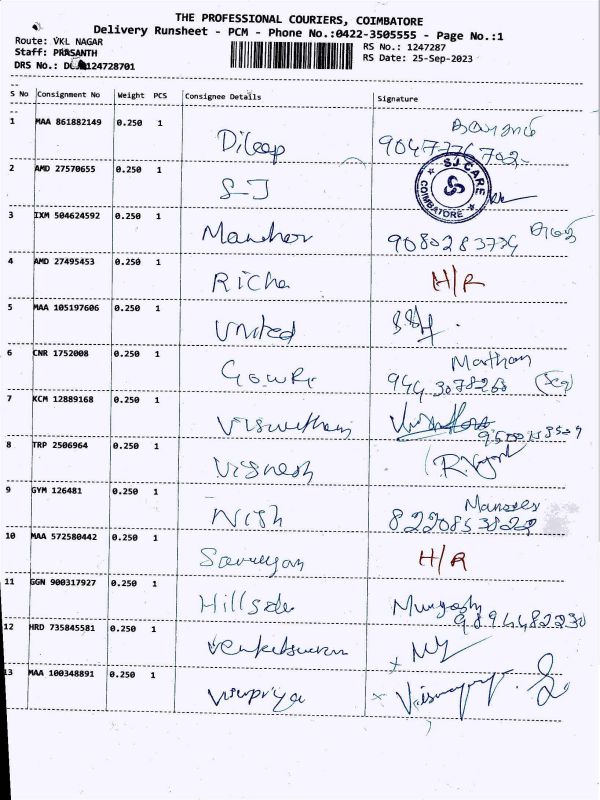 THE PROFESSIONAL COURIERS, COIMBATORE
Delivery Runsheet - PCM - Phone No.:0422-3505555 - Page No.:1
Route: VKL NAGAR
RS No.: 1247287
Staff: PRASANTH
RS Date: 25-Sep-2023
DRS No.: 124728701
S No Consignment No Weight PCS Consignee Details Signature
1 MAA 861882149 0.250 1 Dileep
2 AMD 27570655 0.250 1 SJ SJ CARE COIMBATORE
3 IXM 504624592 0.250 1 Manohar 9080283774
4 AMD 27495453 0.250 1 Richa H/R
5 MAA 105197606 0.250 1 United
6 CNR 1752008 0.250 1 Gowri Mathan
7 KCM 12889168 0.250 1
8 TRP 2506964 0.250 1 Vignesh
9 GYM 126481 0.250 1 Nish
10 MAA 572580442 0.250 1 H/R
11 GGN 900317927 0.250 1 Hillside 9894482230
12 HRD 735845581 0.250 1
13 MAA 100348891 0.250 1 Visupriya